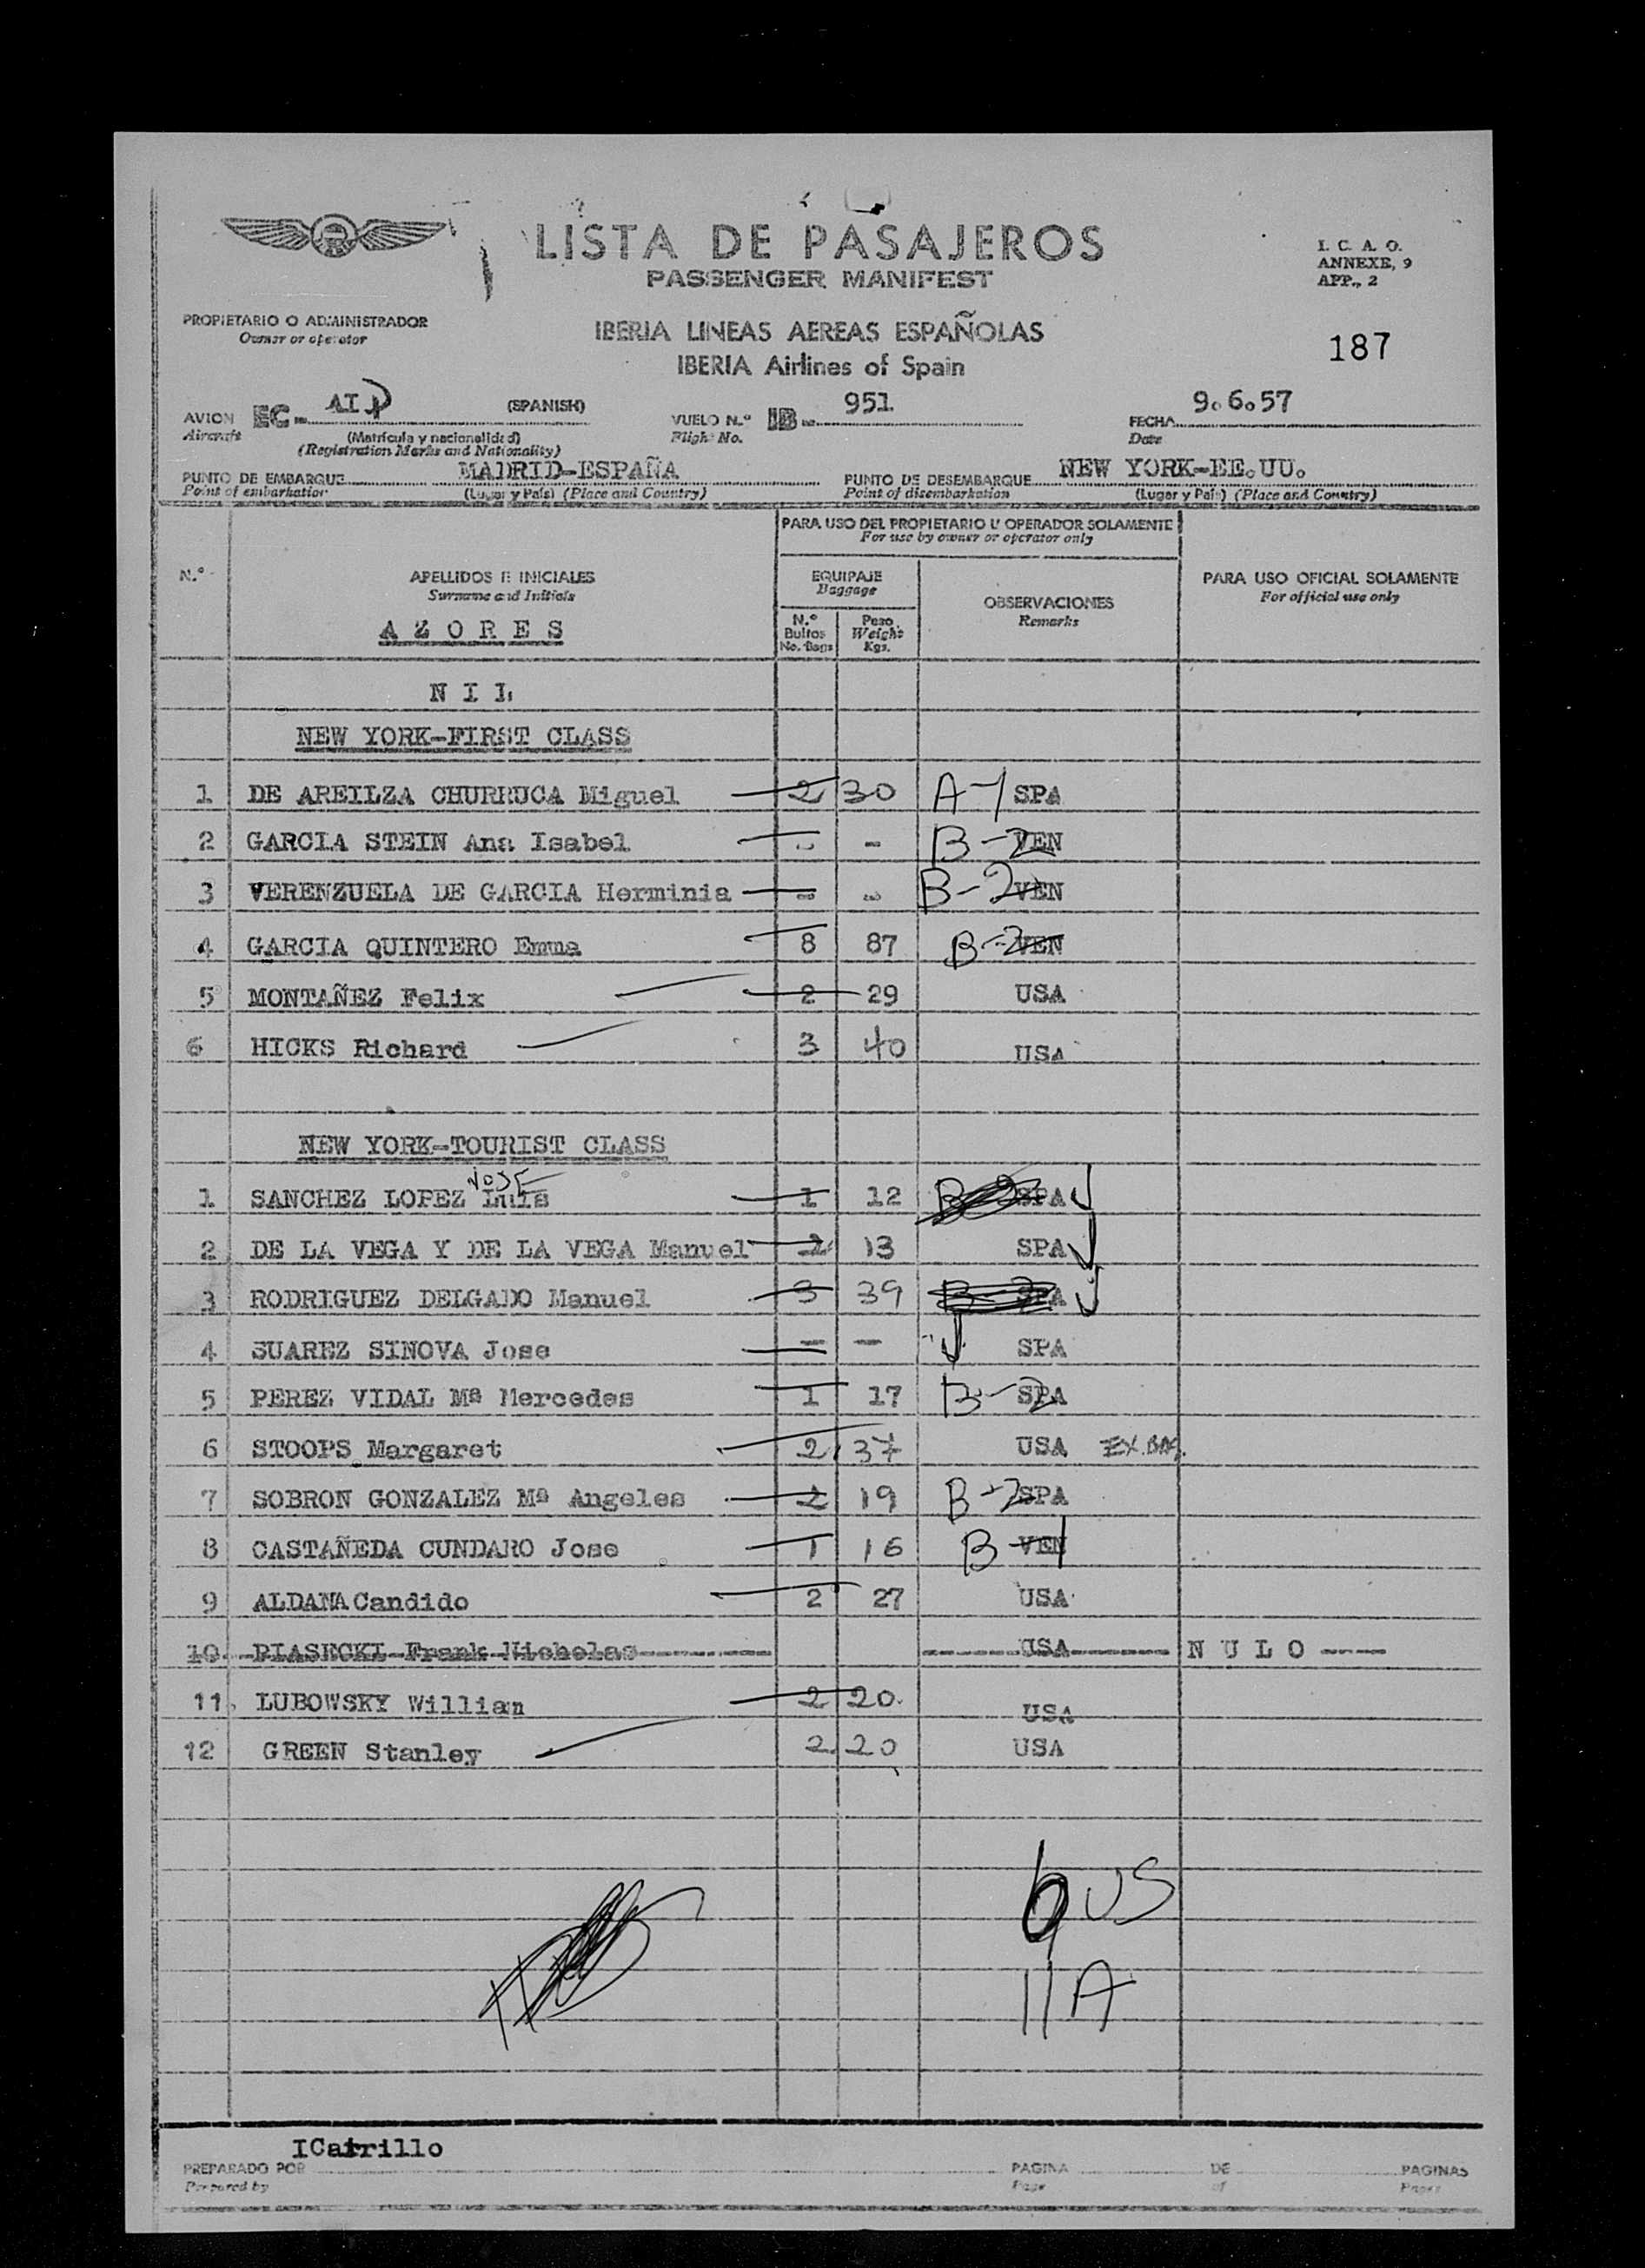 LISTA DE PASAJEROS
PASSENGER MANIFEST
I. C. A. O.
ANNEXE, 9
APP., 2
PROPIETARIO O ADMINISTRADOR
Owner or operator
IBERIA LINEAS AEREAS ESPAÑOLAS
IBERIA Airlines of Spain
187
AVION EC- AIP (SPANISH) VUELO N.º IB- 951 FECHA 9.6.57
Aircraft (Matrícula y nacionalidad) Flight No. Date
(Registration Marks and Nationality)
PUNTO DE EMBARQUE MADRID-ESPAÑA PUNTO DE DESEMBARQUE NEW YORK-EE.UU.
Point of embarkation (Lugar y País) (Place and Country) Point of disembarkation (Lugar y País) (Place and Country)
PARA USO DEL PROPIETARIO U OPERADOR SOLAMENTE
For use by owner or operator only
N.º APELLIDOS E INICIALES EQUIPAJE OBSERVACIONES PARA USO OFICIAL SOLAMENTE
Surname and Initials Baggage Remarks For official use only
AZORES N.º Bultos Peso
No. Bags Weight Kgs.
NIL
NEW YORK-FIRST CLASS
1 DE AREILZA CHURRUCA Miguel 2 30 A-1 SPA
2 GARCIA STEIN Ana Isabel - - B-2 VEN
3 VERENZUELA DE GARCIA Herminia - - B-2 VEN
4 GARCIA QUINTERO Emma 8 87 B-2 VEN
5 MONTAÑEZ Felix 2 29 USA
6 HICKS Richard 3 40 USA
NEW YORK-TOURIST CLASS
JOSE
1 SANCHEZ LOPEZ Luis 1 12 B-2 SPA
2 DE LA VEGA Y DE LA VEGA Manuel 2 13 SPA
3 RODRIGUEZ DELGADO Manuel 3 39 B-2 SPA
4 SUAREZ SINOVA Jose - - SPA
5 PEREZ VIDAL Mª Mercedes 1 17 B-2 SPA
6 STOOPS Margaret 2 37 USA EX.BAG.
7 SOBRON GONZALEZ Mª Angeles 2 19 B-2 SPA
8 CASTAÑEDA CUNDARO Jose 1 16 B-1 VEN
9 ALDANA Candido 2 27 USA
10 PIASECKI Frank Nicholas USA NULO
11 LUBOWSKY Willian 2 20 USA
12 GREEN Stanley 2 20 USA
6 US
11 A
ICarrillo
PREPARADO POR PAGINA DE PAGINAS
Prepared by Page of Pages